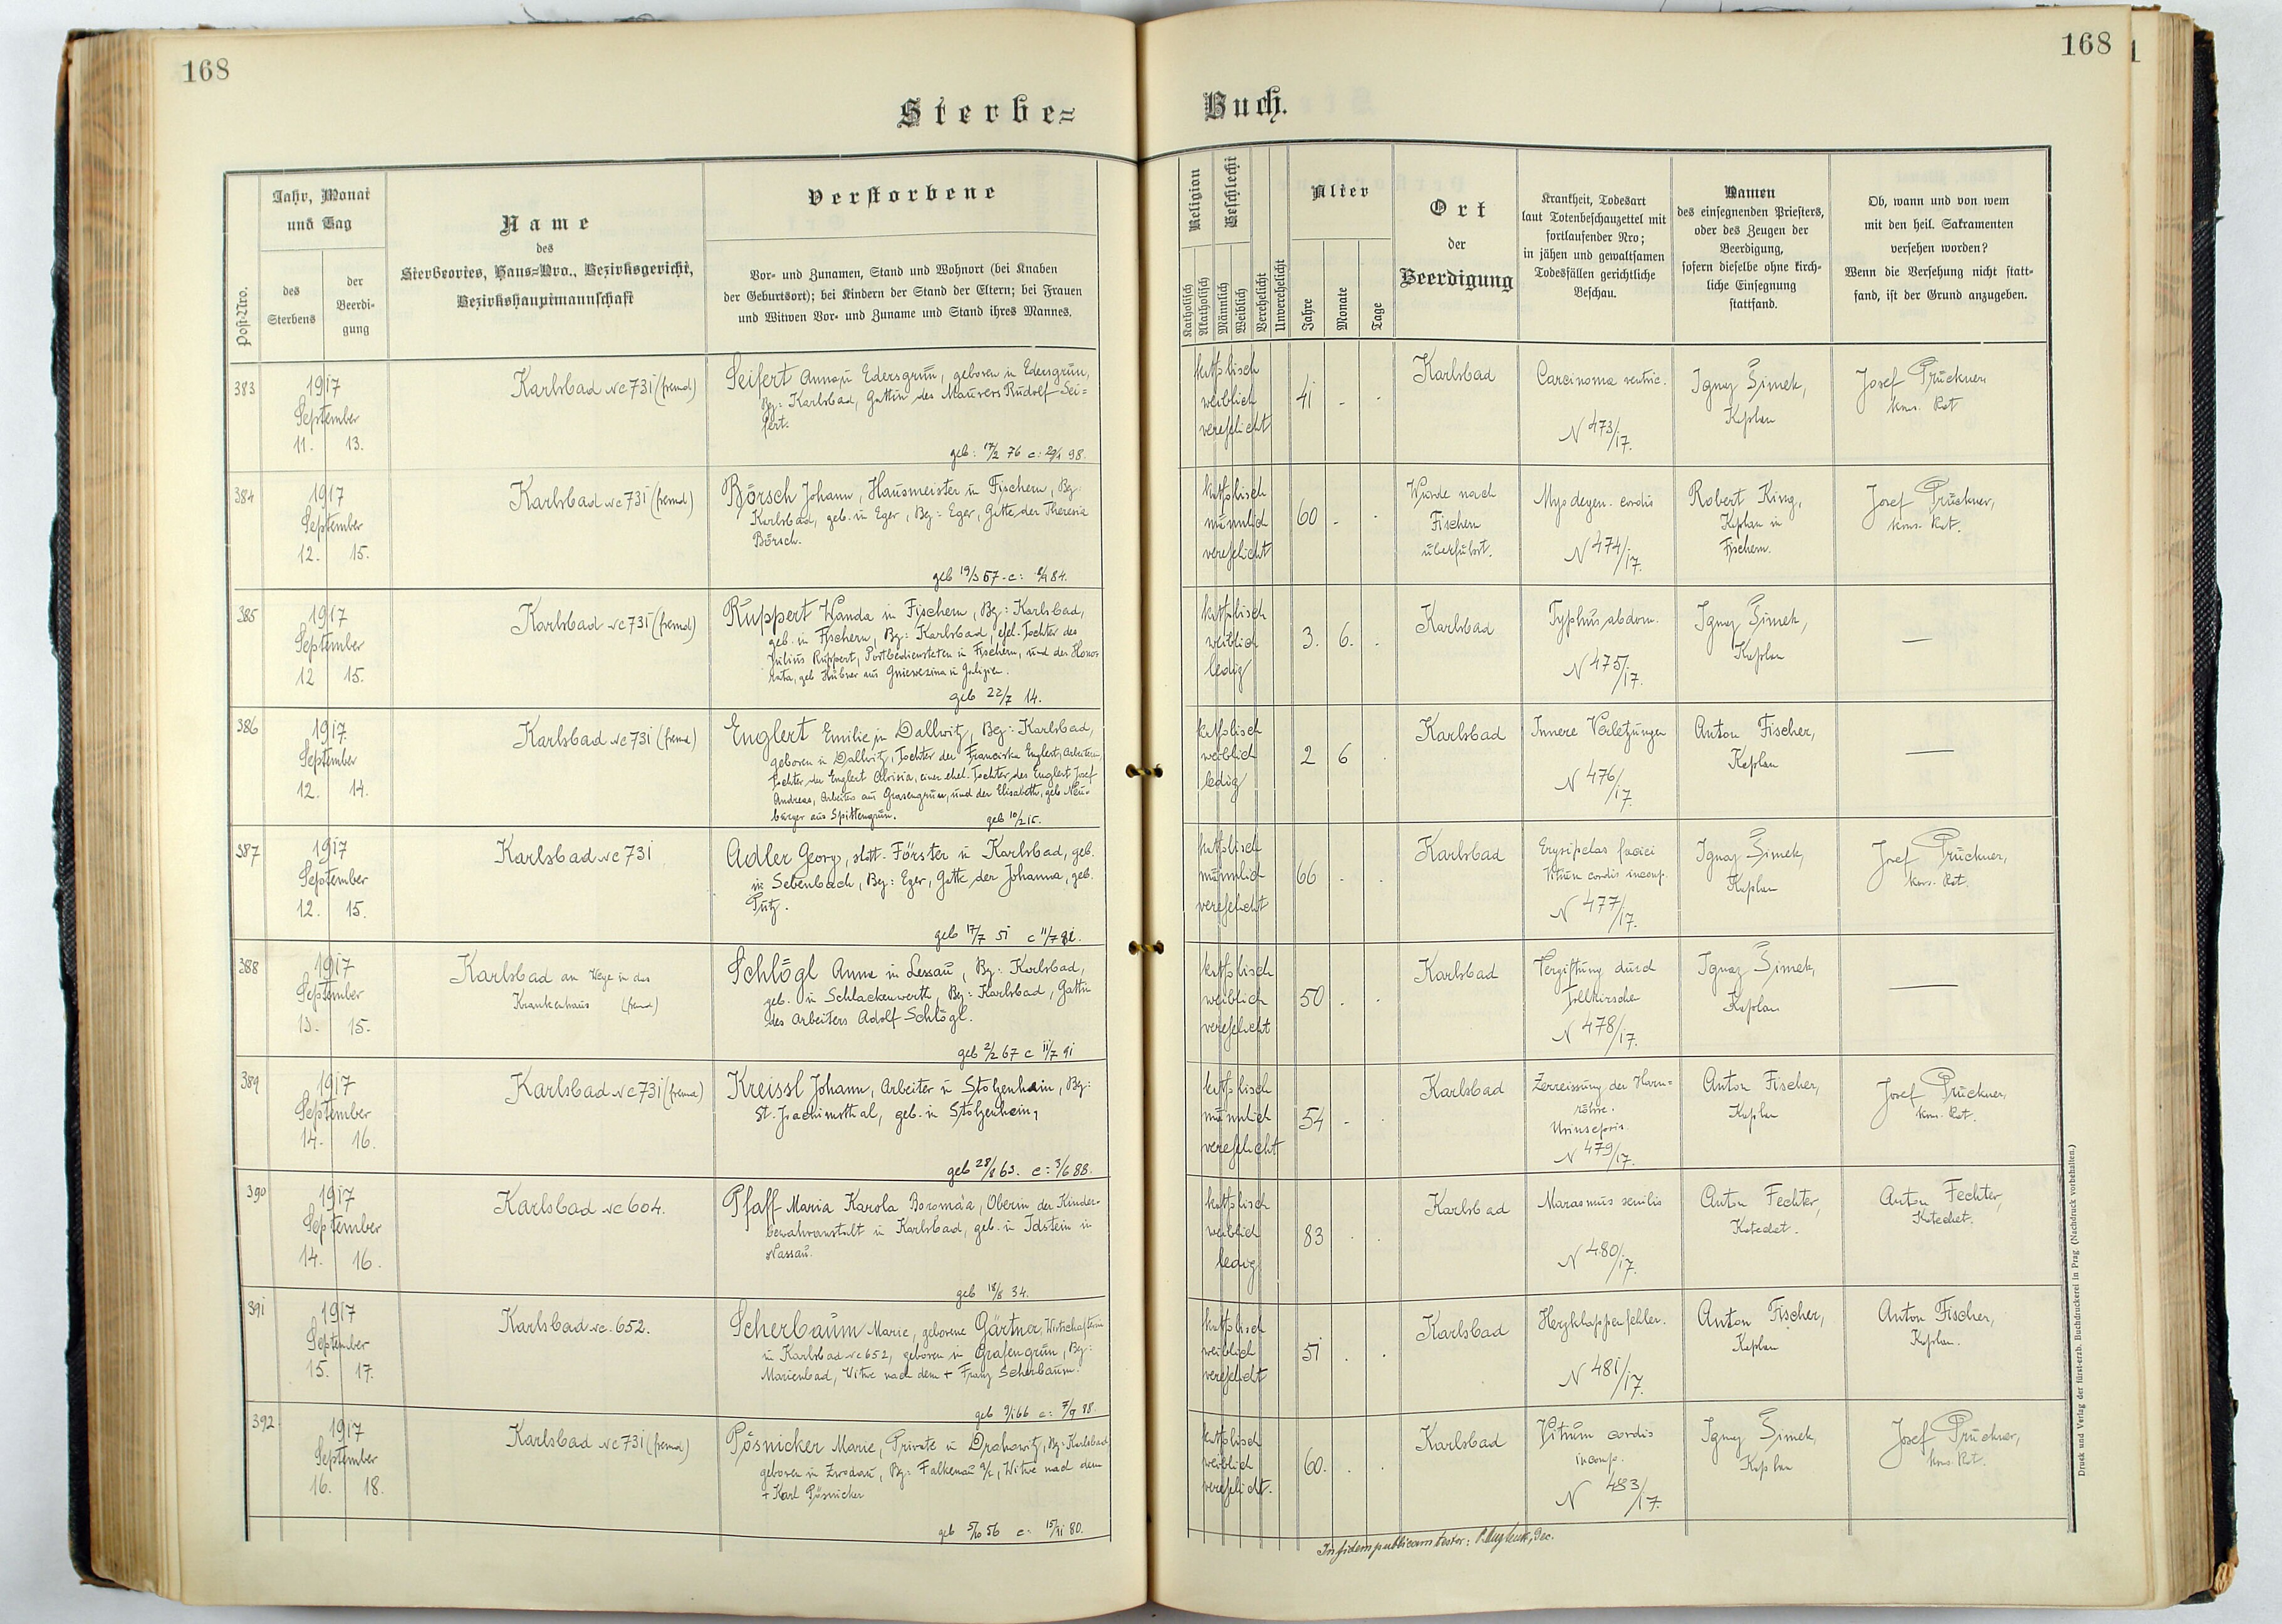 168
168
Sterbe=
Buch.
Post-Nro.
Jahr, Monat
und Tag
des
Sterbens
der
Beerdi-
gung
Name
des
Sterbeortes, Haus=Nro., Bezirksgericht,
Bezirkshauptmannschaft
Verstorbene
Vor- und Zunamen, Stand und Wohnort (bei Knaben
der Geburtsort); bei Kindern der Stand der Eltern; bei Frauen
und Witwen Vor- und Zuname und Stand ihres Mannes.
Religion
Katholisch
Akatholisch
Geschlecht
Männlich
Weiblich
Verehelicht
Unverehelicht
Alter
Jahre
Monate
Tage
Ort
der
Beerdigung
Krankheit, Todesart
laut Totenbeschauzettel mit
fortlaufender Nro;
in jähen und gewaltsamen
Todesfällen gerichtliche
Beschau.
Namen
des einsegnenden Priesters,
oder des Zeugen der
Beerdigung,
sofern dieselbe ohne kirch-
liche Einsegnung
stattfand.
Ob, wann und von wem
mit den heil. Sakramenten
versehen worden?
Wenn die Versehung nicht statt-
fand, ist der Grund anzugeben.
383
1917
September
11. 13.
Karlsbad Nc 731 (fremd)
Seifert Anna in Edersgrün, geboren in Edersgrün,
Bez: Karlsbad, Gattin des Maurers Rudolf Sei=
fert.
geb: 17/2 76 c: 29/1 98.
katholisch
weiblich
verehelicht
41 - -
Karlsbad
Carcinoma ventric.
N 473/17.
Ignaz Šimek,
Kaplan
Josef Prückner
kons. Rat
384
1917
September
12. 15.
Karlsbad Nc 731 (fremd)
Börsch Johann, Hausmeister in Fischern, Bez:
Karlsbad, geb. in Eger, Bez: Eger, Gatte der Theresia
Börsch.
geb 19/3 57 - c: 84.
katholisch
männlich
verehelicht
60 - -
Wurde nach
Fischern
überführt.
Myodegen. cordis
N 474/17.
Robert King,
Kaplan in
Fischern.
Josef Prückner,
kons. Rat.
385
1917
September
12 15.
Karlsbad Nc 731 (fremd)
Ruppert Wanda in Fischern, Bez: Karlsbad,
geb. in Fischern, Bez: Karlsbad, ehel. Tochter des
Julius Ruppert, Postbediensteten in Fischern, und der Hono-
rata, geb Hübner aus Gniewczina in Galizien.
geb 22/7 14.
katholisch
weiblich
ledig
3. 6. .
Karlsbad
Typhus abdom.
N 475/17.
Ignaz Šimek,
Kaplan
—
386
1917
September
12. 14.
Karlsbad Nc 731 (fremd)
Englert Emilie in Dallwitz, Bez: Karlsbad,
geboren in Dallwitz, Tochter der Franciska Englert, Arbeiterin
Tochter der Englert Aloisia, einer ehel. Tochter des Englert Josef
Andreas, Arbeiters aus Grasengrün, und der Elisabeth, geb. Neu-
burger aus Spittengrün.
geb 10/2 15.
katholisch
weiblich
ledig
2 6 .
Karlsbad
Innere Verletzungen
N 476/17
Anton Fischer,
Kaplan
—
387
1917
September
12. 15.
Karlsbad Nc 731
Adler Georg, städt. Förster in Karlsbad, geb.
in Sebenbach, Bez: Eger, Gatte der Johanna, geb.
Putz.
geb 17/7 51 c 11/7 81.
katholisch
männlich
verehelicht
66 . .
Karlsbad
Erysipelas faciei
Vitium cordis incomp.
N 477/17.
Ignaz Šimek,
Kaplan
Josef Prückner,
kons. Rat.
388
1917
September
13. 15.
Karlsbad am Wege in das
Krankenhaus (fremd)
Schlögl Anna in Lessau, Bz: Karlsbad,
geb. in Schlackenwerth, Bez: Karlsbad, Gattin
des Arbeiters Adolf Schlögl.
geb 2/2 67 c 11/7 91
katholisch
weiblich
verehelicht
50 . .
Karlsbad
Vergiftung durch
Tollkirsche
N 478/17.
Ignaz Šimek,
Kaplan
—
389
1917
September
14. 16.
Karlsbad Nc 731 (fremd)
Kreissl Johann, Arbeiter in Stolzenhain, Bz:
St. Joachimsthal, geb. in Stolzenhain,
geb 28/8 63. c: 3/6 88.
katholisch
männlich
verehelicht
54 - .
Karlsbad
Zerreissung der Harn=
röhre.
Urinsepsis.
N 479/17.
Anton Fischer,
Kaplan
Josef Prückner,
kons. Rat.
390
1917
September
14. 16.
Karlsbad Nc 604.
Pfaff Maria Karola Boromäa, Oberin der Kinder-
bewahranstalt in Karlsbad, geb. in Idstein in
Nassau.
geb 18/8 34.
katholisch
weiblich
ledig
83 . .
Karlsbad
Marasmus senilis
N 480/17.
Anton Fechter,
Katechet.
Anton Fechter,
Katechet.
391
1917
September
15. 17.
Karlsbad Nc. 652.
Scherbaum Marie, geborene Gärtner, Wirtschafterin
in Karlsbad Nc 652, geboren in Grafengrün, Bez:
Marienbad, Witwe nach dem + Franz Scherbaum.
geb 9/1 66 c: 7/9 88.
katholisch
weiblich
verehelicht
51 . .
Karlsbad
Herzklappenfehler.
N 481/17.
Anton Fischer,
Kaplan
Anton Fischer,
Kaplan.
392.
1917
September
16. 18.
Karlsbad Nc 731 (fremd)
Pösnicker Marie, Private in Drahowitz, Bz: Karlsbad
geboren in Zwodau, Bez: Falkenau a/E, Witwe nach dem
+ Karl Pösnicker
geb 5/10 56 c: 15/11 80.
katholisch
weiblich
verehelicht.
60. . .
Karlsbad
Vitium cordis
incomp.
N 483/17.
Ignaz Šimek,
Kaplan
Josef Prückner,
kons. Rat.
In fidem publicam testor:
Druck und Verlag der fürst-erzb. Buchdruckerei in Prag (Nachdruck vorbehalten.)